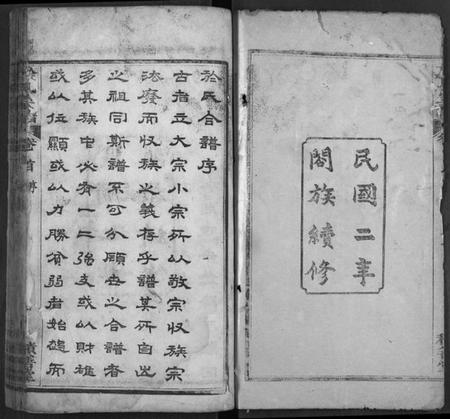 民國二年
閤族續修
於氏合譜序
古者立大宗小宗所以敬宗收族宗
法廢而收族之義存乎譜其所自出
之祖同斯譜不可分顧世之合譜者
多其族中必有一二強支或以財雄
或以位顯或以力勝貧弱者始雖而
卷首